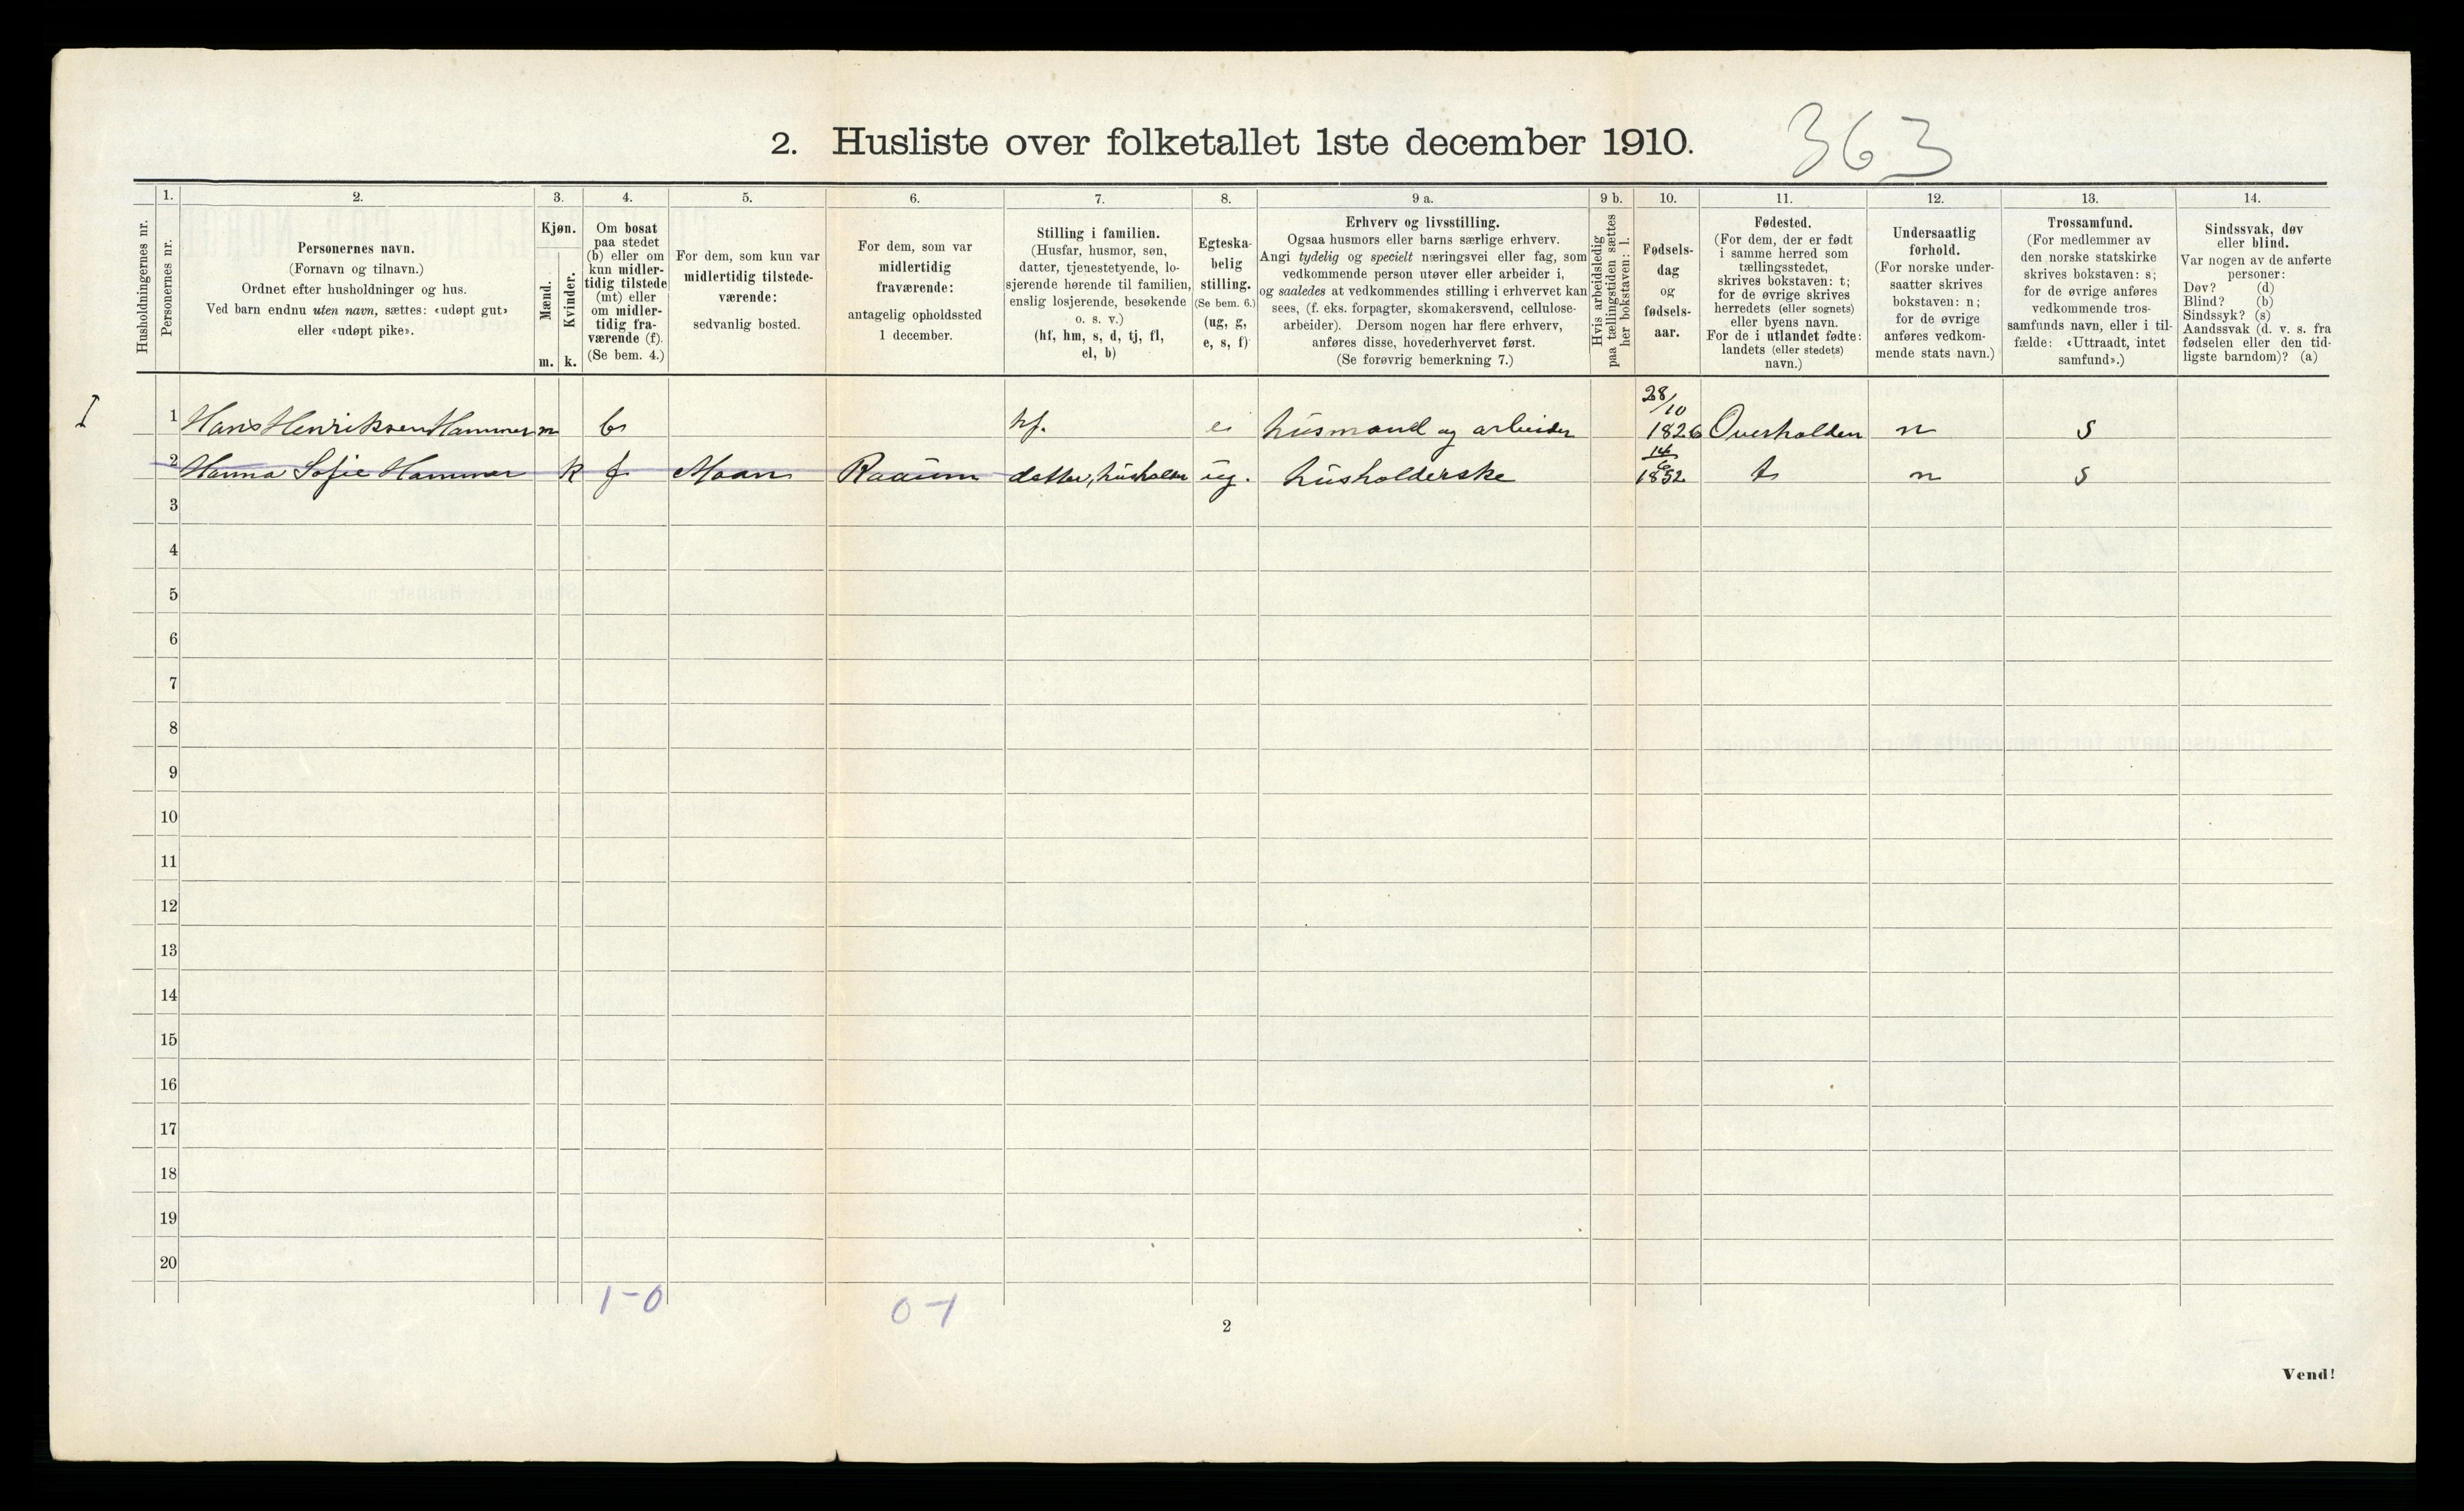 2. Husliste over folketallet 1ste december 1910.
363
Husholdningernes nr.
1.
Personernes nr.
2.
Personernes navn.
(Fornavn og tilnavn.)
Ordnet efter husholdninger og hus.
Ved barn endnu uten navn, sættes: «udøpt gut»
eller «udøpt pike».
3.
Kjøn.
Mænd.
m.
Kvinder.
k.
4.
Om bosat
paa stedet
(b) eller om
kun midler-
tidig tilstede
(mt) eller
om midler-
tidig fra-
værende (f).
(Se bem. 4.)
5.
For dem, som kun var
midlertidig tilstede-
værende:
sedvanlig bosted.
6.
For dem, som var
midlertidig
fraværende:
antagelig opholdssted
1 december.
7.
Stilling i familien.
(Husfar, husmor, søn,
datter, tjenestetyende, lo-
sjerende hørende til familien,
enslig losjerende, besøkende
o. s. v.)
(hf, hm, s, d, tj, fl,
el, b)
8.
Egteska-
belig
stilling.
(Se bem. 6.)
(ug, g,
e, s, f)
9 a.
Erhverv og livsstilling.
Ogsaa husmors eller barns særlige erhverv.
Angi tydelig og specielt næringsvei eller fag, som
vedkommende person utøver eller arbeider i,
og saaledes at vedkommendes stilling i erhvervet kan
sees, (f. eks. forpagter, skomakersvend, cellulose-
arbeider). Dersom nogen har flere erhverv,
anføres disse, hovederhvervet først.
(Se forøvrig bemerkning 7.)
9 b.
Hvis arbeidsledig
paa tællingstiden sættes
her bokstaven: l.
10.
Fødsels-
dag
og
fødsels-
aar.
11.
Fødested.
(For dem, der er født
i samme herred som
tællingsstedet,
skrives bokstaven: t;
for de øvrige skrives
herredets (eller sognets)
eller byens navn.
For de i utlandet fødte:
landets (eller stedets)
navn.)
12.
Undersaatlig
forhold.
(For norske under-
saatter skrives
bokstaven: n;
for de øvrige
anføres vedkom-
mende stats navn.)
13.
Trossamfund.
(For medlemmer av
den norske statskirke
skrives bokstaven: s;
for de øvrige anføres
vedkommende tros-
samfunds navn, eller i til-
fælde: «Uttraadt, intet
samfund».)
14.
Sindssvak, døv
eller blind.
Var nogen av de anførte
personer:
Døv? (d)
Blind? (b)
Sindssyk? (s)
Aandssvak (d. v. s. fra
fødselen eller den tid-
ligste barndom)? (a)
I 1 Hans Henriksen Hammer m b hf. e husmand og arbeider 28/10 1826 Overhalden n s
2 Hanna Sofie Hammer k f Moan Raaum datter, husholder ug. husholderske 14/6 1852 t n s
3
4
5
6
7
8
9
10
11
12
13
14
15
16
17
18
19
20
1-0
0-1
2
Vend!